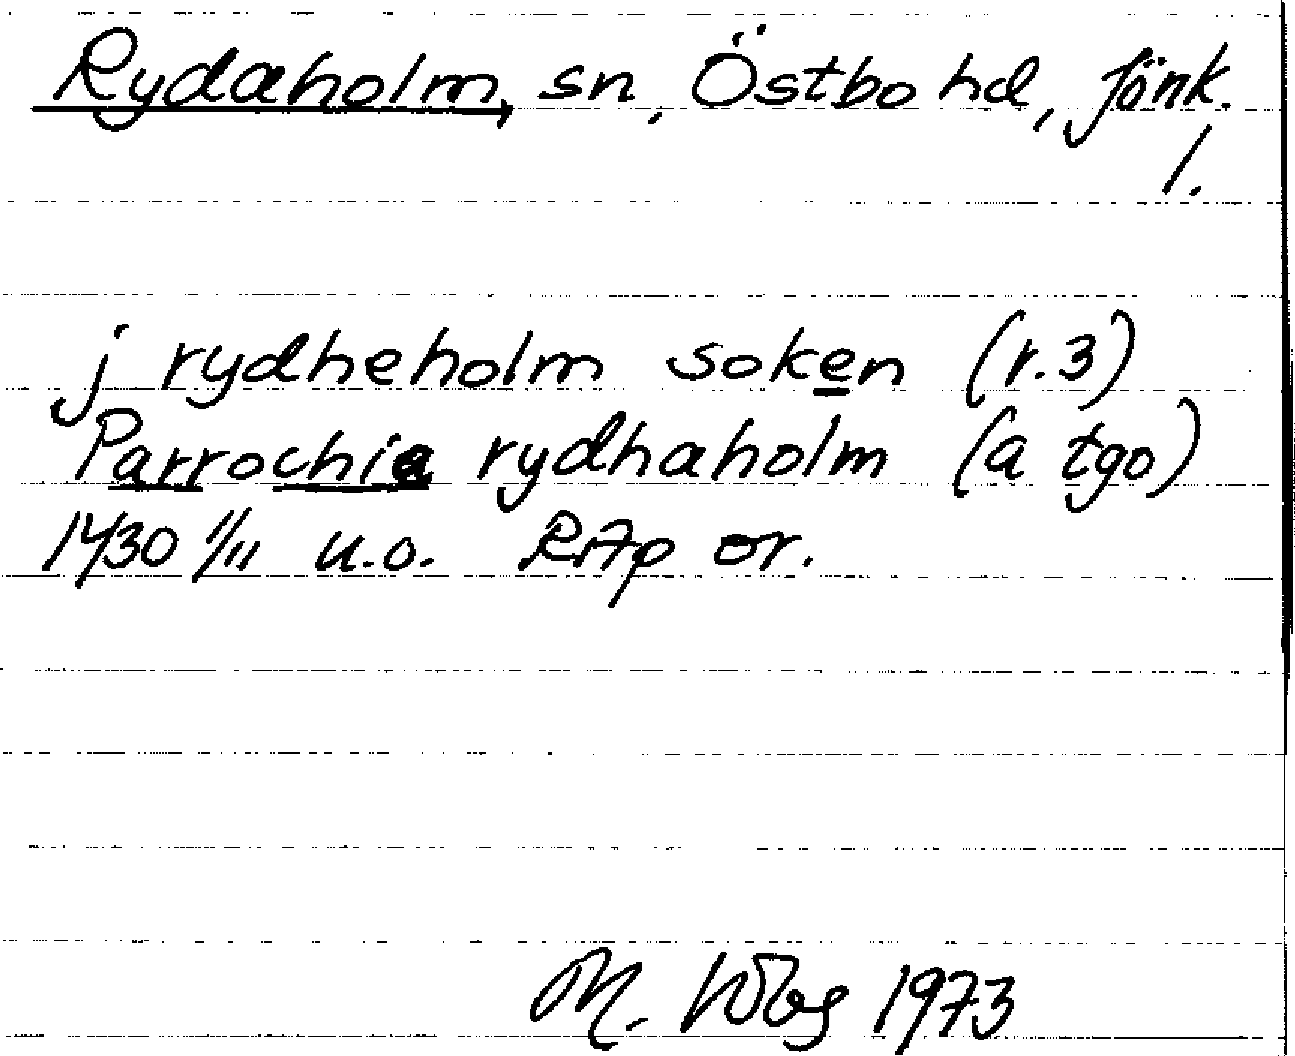 Rydaholm, sn, Östbo hd, Jönk.
l.
j rydheholm soken (r. 3)
Parrochia rydhaholm (a tgo)
1430 1/11 u.o. RAp or.
M. 1973